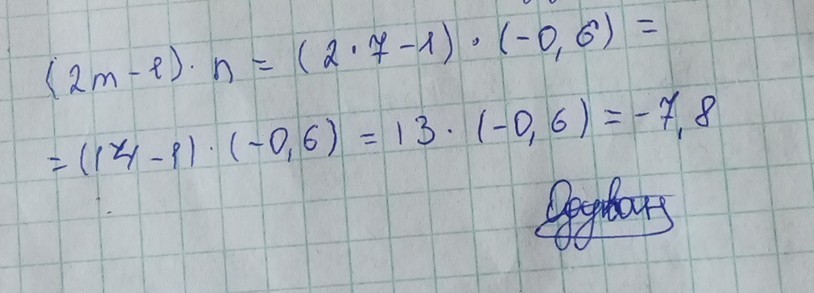 (2m-1)·n = (2·7-1)·(-0,6) =
= (14-1)·(-0,6) = 13·(-0,6) = -7,8